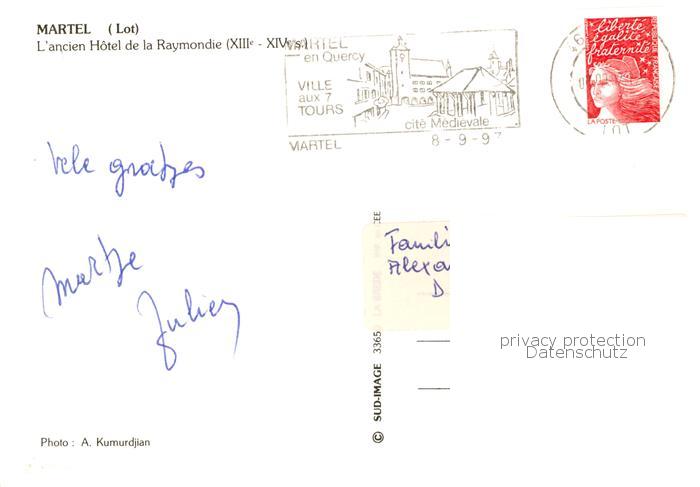 MARTEL (Lot)
L'ancien Hôtel de la Raymondie (XIIIe - XIVe s.)
MARTEL
en Quercy
VILLE
aux 7
TOURS
cité Médiévale
MARTEL 8-9-97
liberté
égalité
fraternité
RÉPUBLIQUE FRANÇAISE
LA POSTE
LOT
Famili
Alexa
D
privacy protection
Datenschutz
© SUD-IMAGE 3365 LA BREDE
Photo : A. Kumurdjian